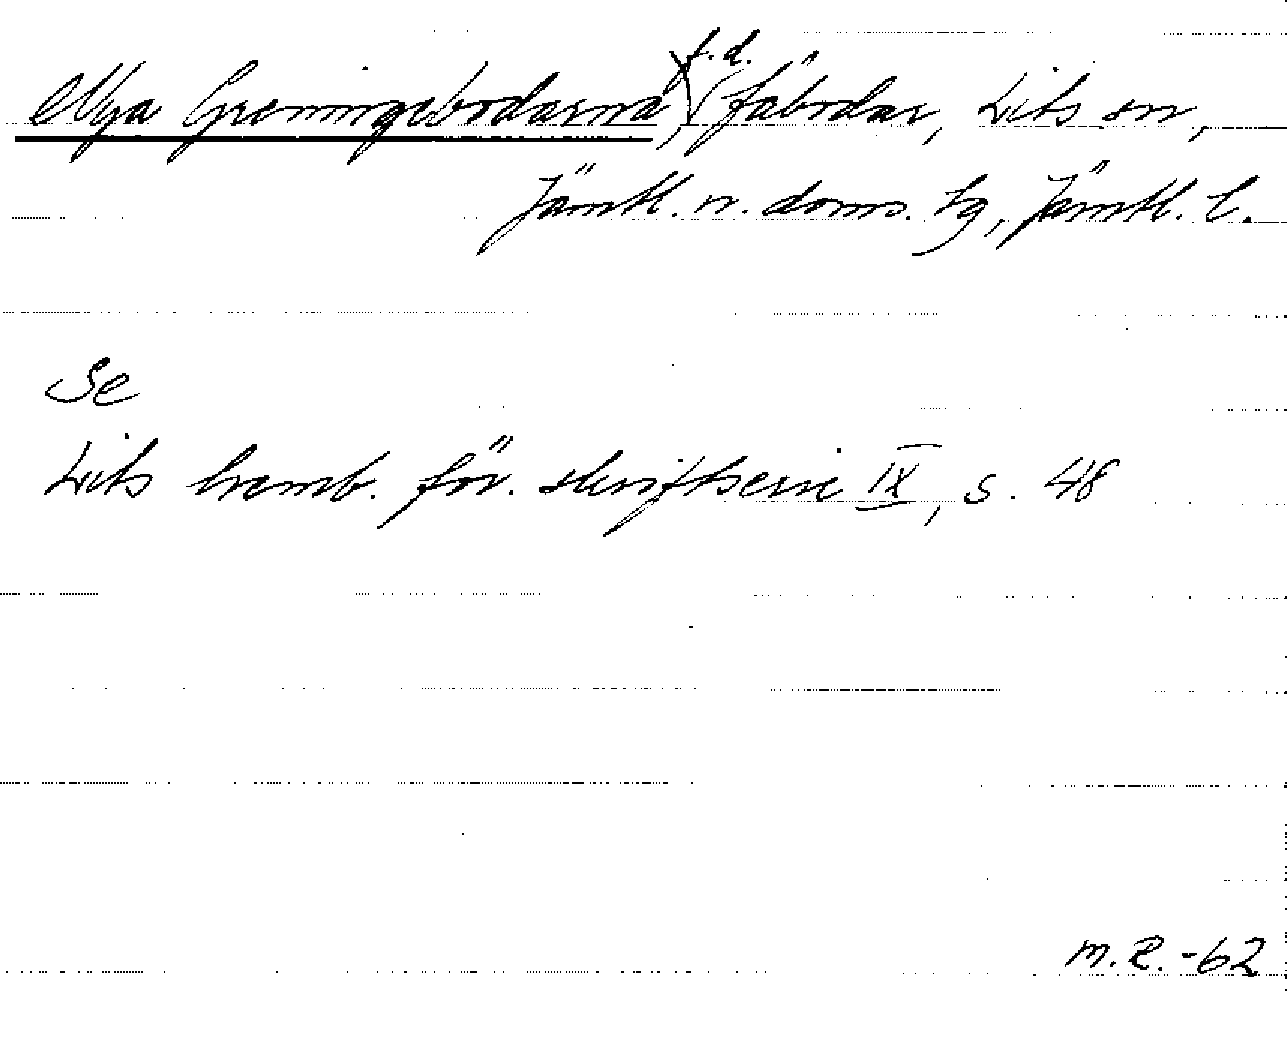 Nya Greningebodarna, f.d. fäbodar, Lits sn,
Jämtl. n. doms. tg, Jämtl. l.
Se
Lits hemb. för. skriftserie IX, s. 48
M.R. -62